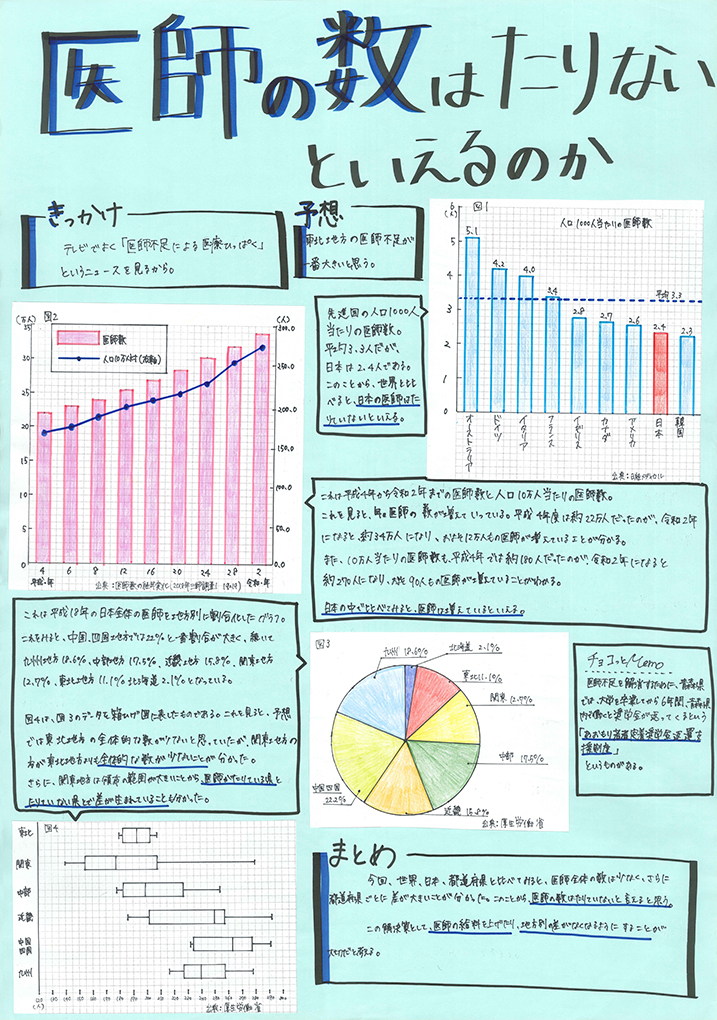 医師の数はたりない
といえるのか
きっかけ
テレビでよく「医師不足による医療ひっぱく」
というニュースを見るから。
予想
東北地方の医師不足が
一番大きいと思う。
図1
人口1000人当たりの医師数
(人)
6
5
4
3
2
1
0
5.1
4.2
4.0
3.4
2.8
2.7
2.6
2.4
2.3
平均3.3
オーストラリア
ドイツ
イタリア
フランス
イギリス
カナダ
アメリカ
日本
韓国
先進国の人口1000人
当たりの医師数。
平均3.3人だが、
日本は2.4人である。
このことから、世界と比
べると、日本の医師はた
りていないといえる。
図2
(万人)
(人)
医師数
人口10万人対(右軸)
35
30
25
20
15
10
5
0
300.0
250.0
200.0
150.0
100.0
50.0
0.0
4 6 8 12 16 20 24 28 2
平成・年
令和・年
これは平成4年から令和2年までの医師数と人口10万人当たりの医師数。
これを見ると、年々医師の数が増えていっている。平成4年度は約22万人だったのが、令和2年
になると約34万人になり、およそ12万人もの医師が増えていることが分かる。
また、10万人当たりの医師数も、平成4年では約180人だったのが令和2年になると
約270人になり、およそ90人もの医師が増えていることがわかる。
日本の中で比べてみると、医師は増えているといえる。
これは平成18年の日本全体の医師を地方別に割合化したグラフ。
これをみると、中国、四国地方では22%と一番割合が大きく、続いて
九州地方18.6%、中部地方17.5%、近畿地方15.8%、関東地方
12.7%、東北地方11.1%北海道2.1%となっている。
図4は、図3のデータを箱ひげ図に表したものである。これを見ると、予想
では東北地方の全体的な数が少ないと思っていたが、関東地方の
方が東北地方よりも全体的な数が少ないことが分かった。
さらに、関東地方は箱の範囲が大きいことから、医師がたりている県と
たりていない県とで差が生まれていることも分かった。
図3
北海道 2.1%
東北11.1%
関東 12.7%
中部 17.5%
近畿 15.8%
中国四国
22.2%
九州 18.6%
出典:厚生労働省
チョコっとMemo
医師不足を解消するために、青森県
では、大学を卒業してから6年間、青森県
「あおもり若者定着奨学金返還支
援制度」
というものがある。
図4
東北
関東
中部
近畿
中国
四国
九州
(人)
出典:厚生労働省
まとめ
今回、世界、日本、都道府県と比べてみると、医師全体の数は少なく、さらに
都道府県ごとに差が大きいことが分かった。このことから、医師の数はたりていないと言えると思う。
この解決策として、医師の給料を上げたり、地方別の差がなくなるようにすることが
大切だと考える。